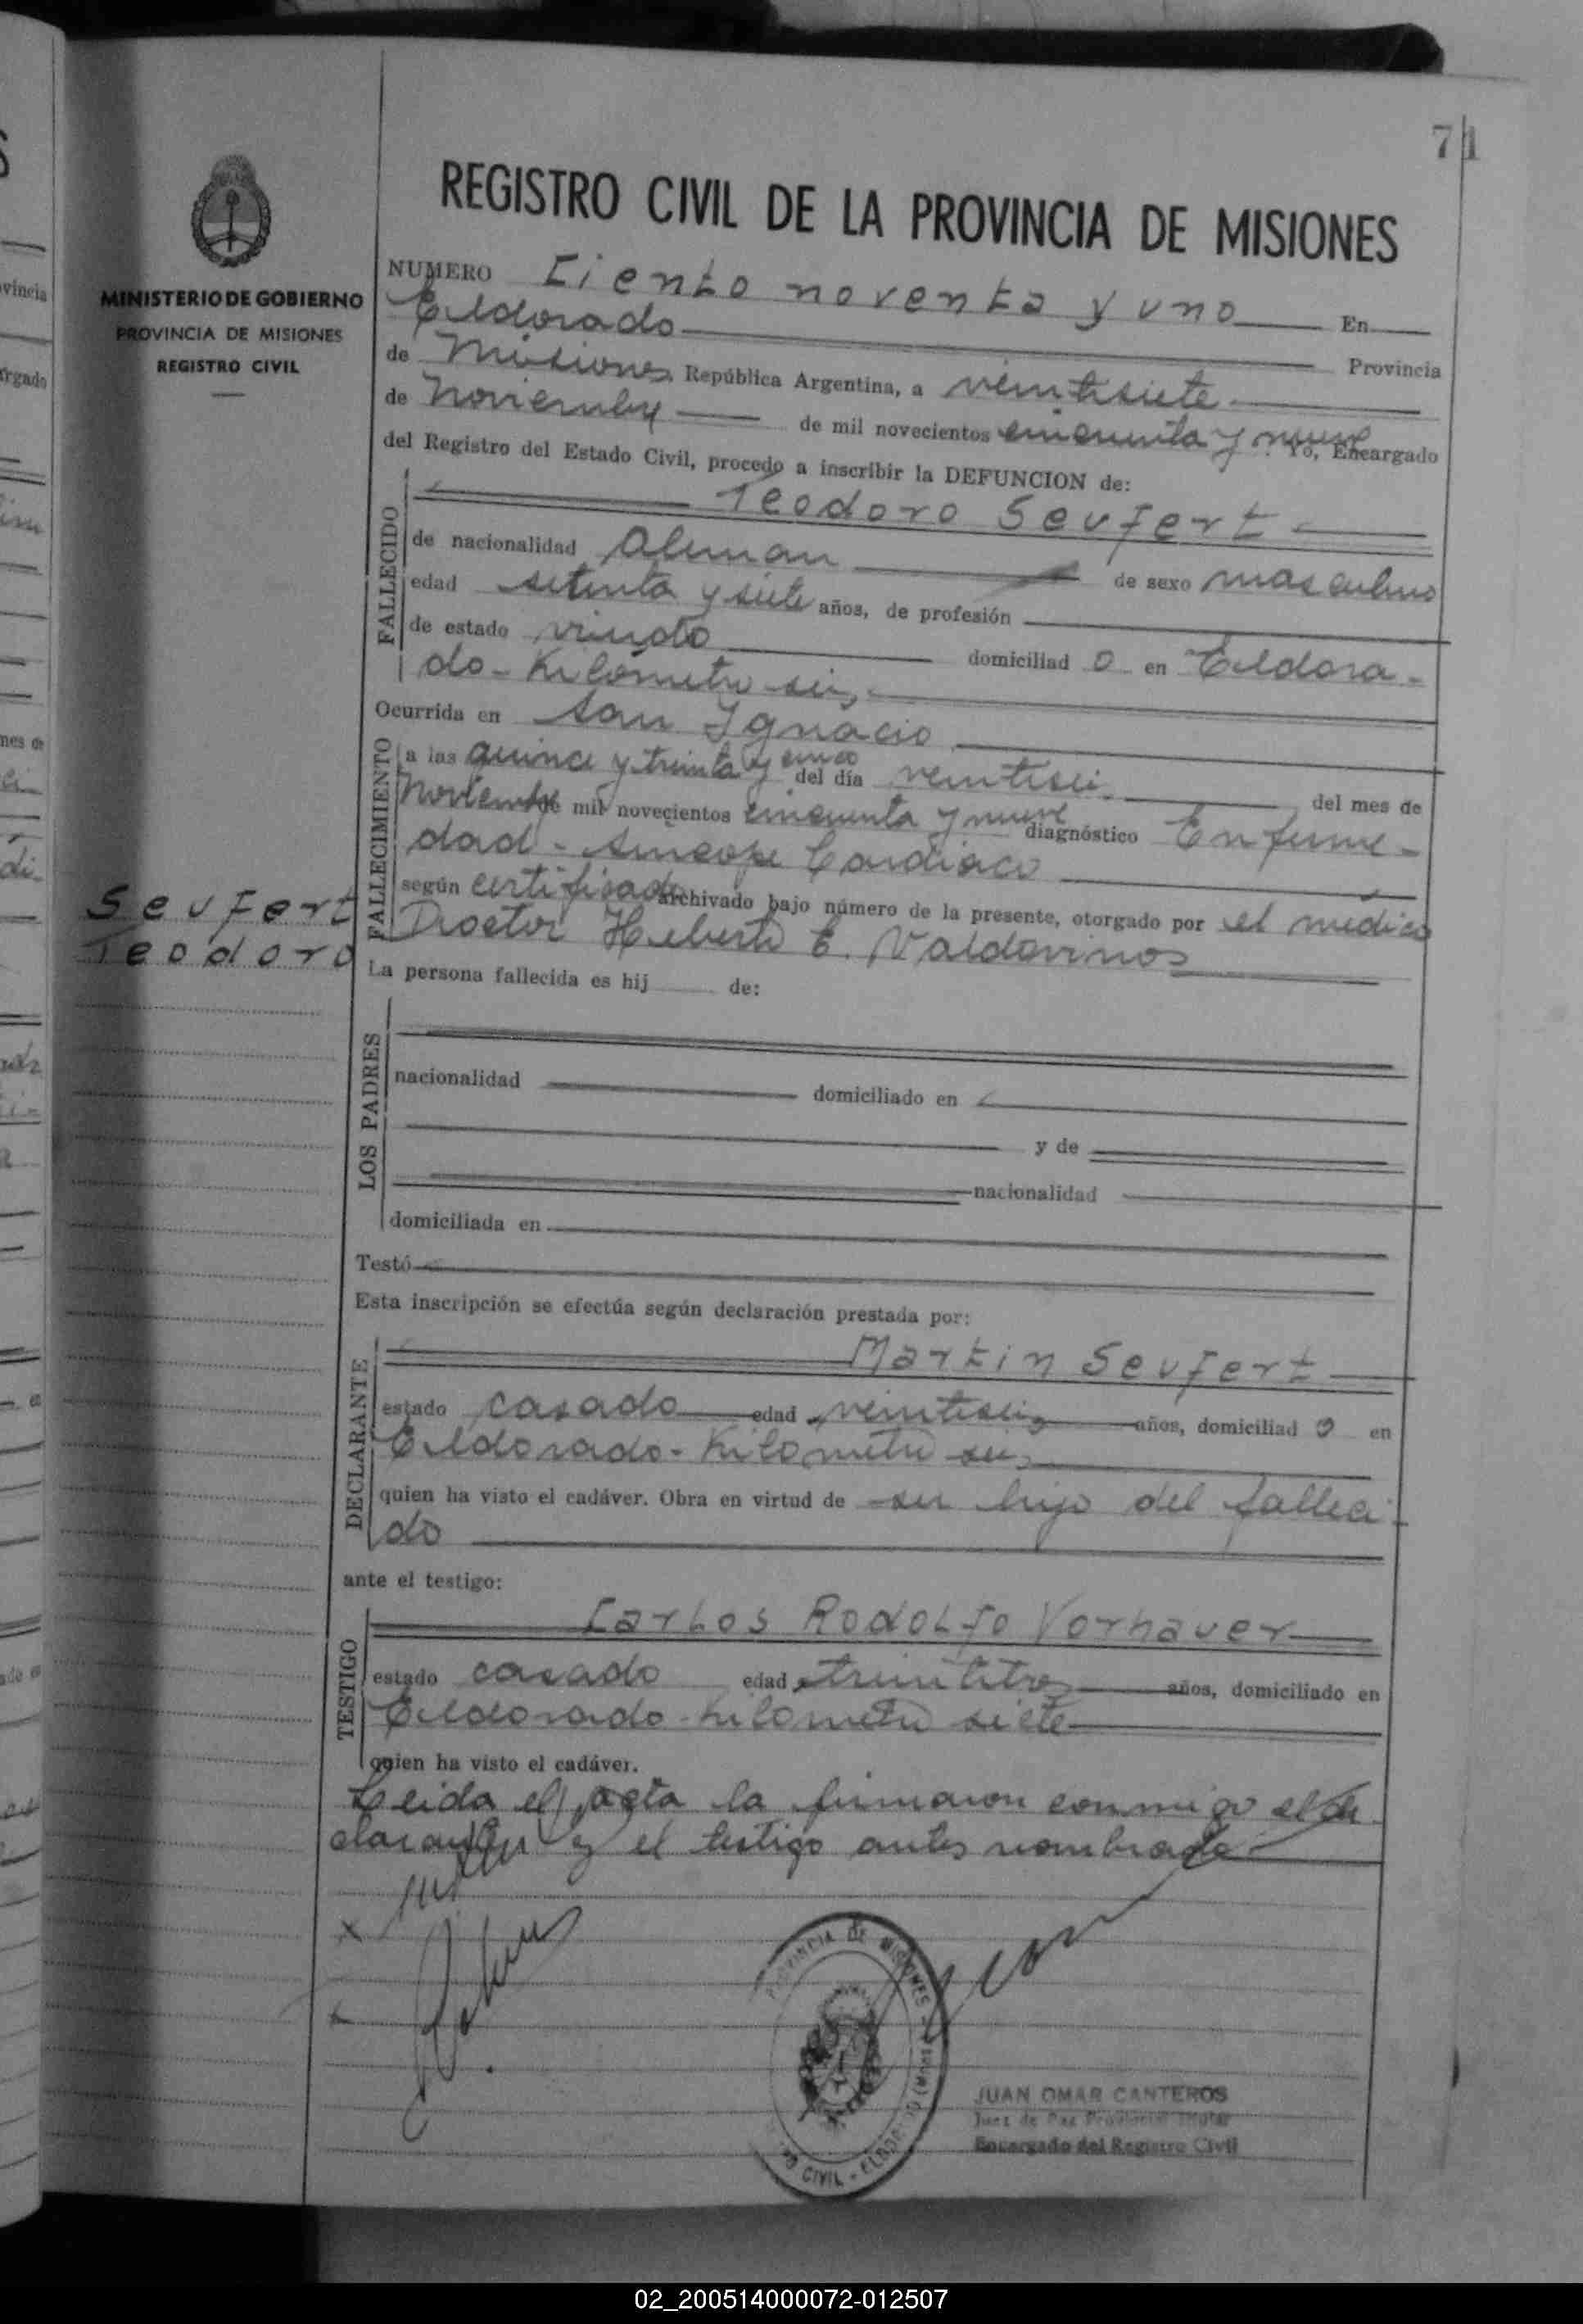 71
REGISTRO CIVIL DE LA PROVINCIA DE MISIONES
MINISTERIO DE GOBIERNO
PROVINCIA DE MISIONES
REGISTRO CIVIL
NUMERO Ciento noventa y uno En
Eldorado Provincia
de Misiones República Argentina, a veintisiete
de Noviembre de mil novecientos cincuenta y nueve Yo, Encargado
del Registro del Estado Civil, procedo a inscribir la DEFUNCION de:
Teodoro Seufert
FALLECIDO
de nacionalidad Aleman de sexo masculino
edad setenta y siete años, de profesión
de estado viudo domiciliad o en Eldora-
do - Kilómetro seis
Ocurrida en San Ignacio
FALLECIMIENTO
a las quince y treinta y cinco del día veintiseis del mes de
Noviembre mil novecientos cincuenta y nueve diagnóstico Enferme-
dad - Sincope Cardiaco
según certificado archivado bajo número de la presente, otorgado por el médico
Doctor Heberto E. Valdovinos
Seufert
Teodoro
La persona fallecida es hij de:
LOS PADRES
nacionalidad domiciliado en
y de
nacionalidad
domiciliada en
Testó
Esta inscripción se efectúa según declaración prestada por:
DECLARANTE
Martin Seufert
estado casado edad veintiseis años, domiciliad o en
Eldorado - Kilometro seis
quien ha visto el cadáver. Obra en virtud de su hijo del falleci-
do
ante el testigo:
TESTIGO
Carlos Rodolfo Vorhauer
estado casado edad treintitres años, domiciliado en
Eldorado - Kilometro siete
quien ha visto el cadáver.
Leida el acta la firmaron conmigo el de
clarante y el testigo antes nombrado
PROVINCIA DE MISIONES
CIVIL
JUAN OMAR CANTEROS
Juez de Paz Provincial Titular
Encargado del Registro Civil
02_200514000072-012507